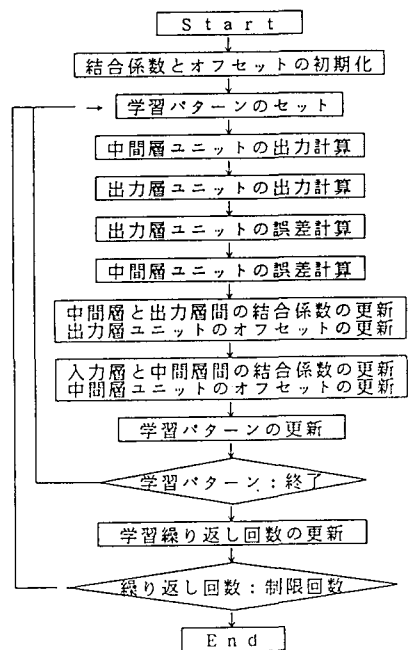 Start
結合係数とオフセットの初期化
学習パターンのセット
中間層ユニットの出力計算
出力層ユニットの出力計算
出力層ユニットの誤差計算
中間層ユニットの誤差計算
中間層と出力層間の結合係数の更新
出力層ユニットのオフセットの更新
入力層と中間層間の結合係数の更新
中間層ユニットのオフセットの更新
学習パターンの更新
学習パターン:終了
学習繰り返し回数の更新
繰り返し回数:制限回数
End